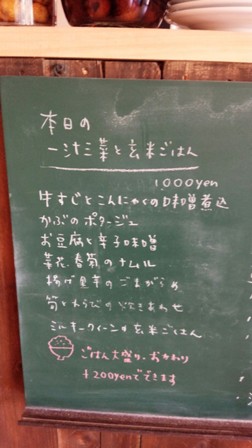 本日の
一汁三菜と玄米ごはん
1000yen
牛すじとこんにゃくの味噌煮込
かぶのポタージュ
お豆腐と辛子味噌
菜花、春菊のナムル
揚げ里芋のごまがらめ
筍とわらびのたきあわせ
ミルキークイーンの玄米ごはん
ごはん大盛り、おかわり
+200yenでできます